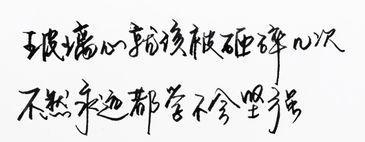 玻璃心就该被砸碎几次
不然永远都学不会坚强